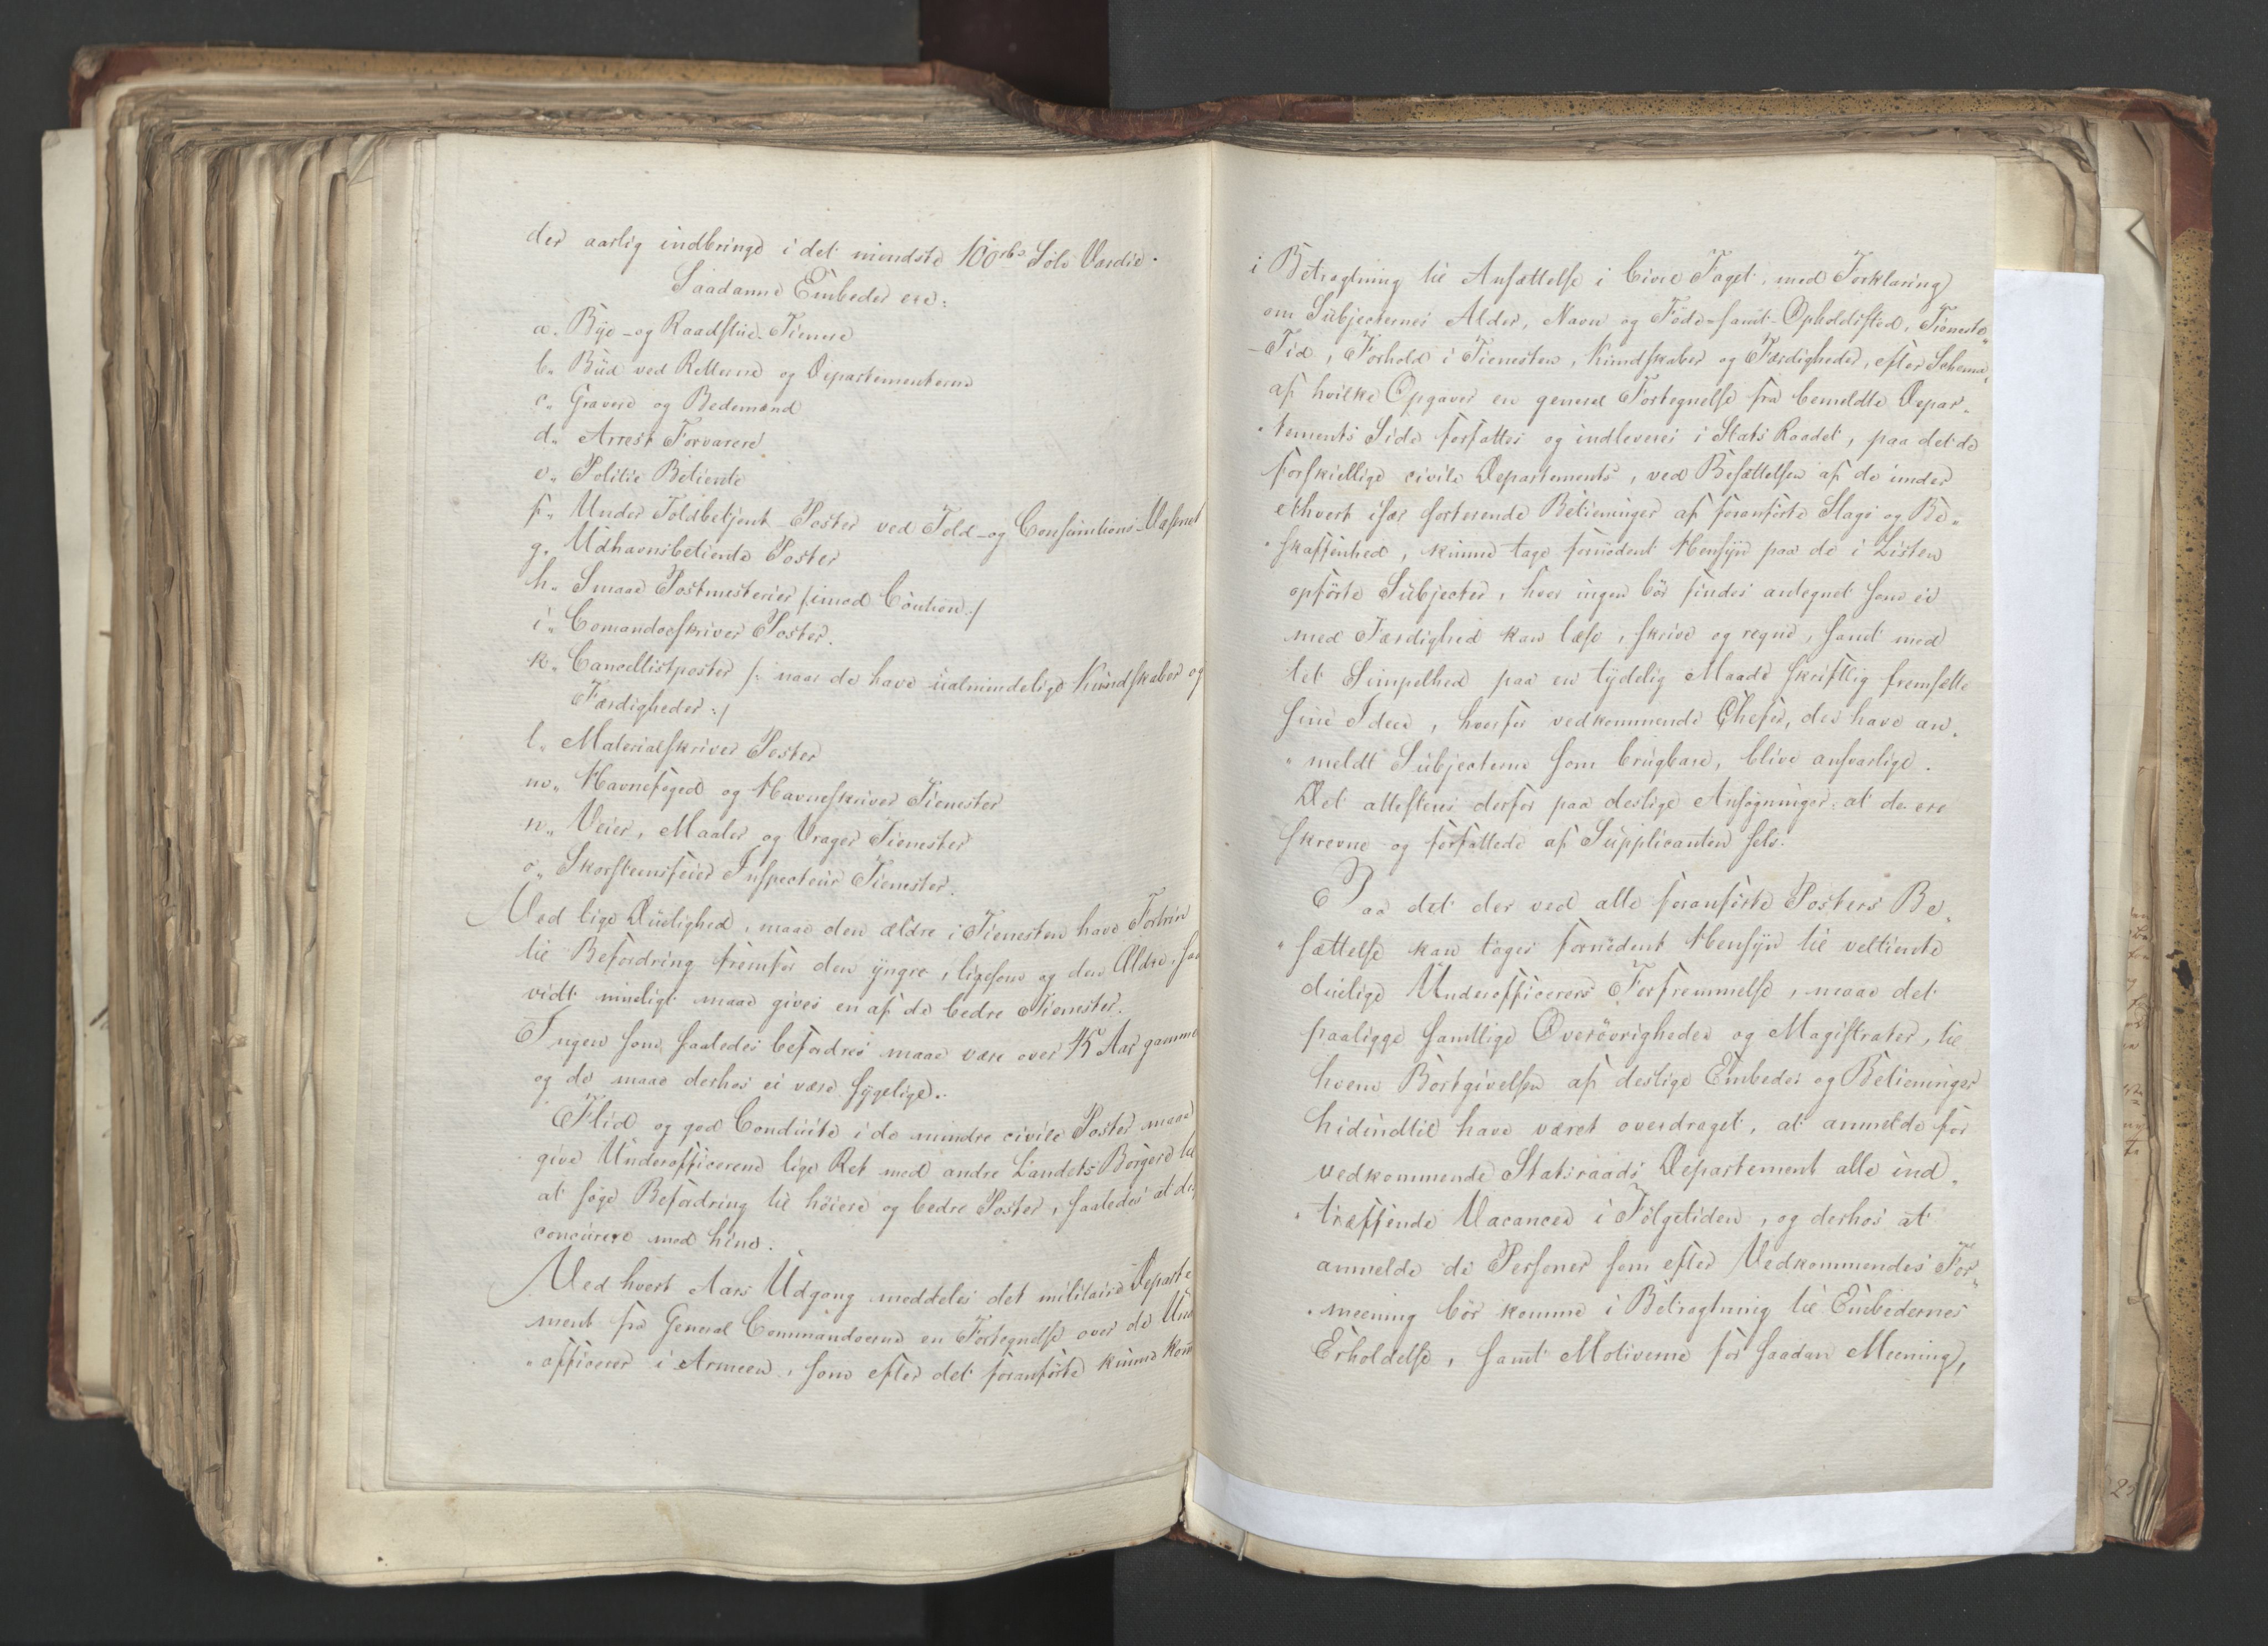 der aarlig indbringe i det mindste 100 rbd Sølv Værdie.
Saadanne Embeder ere:
a. Bye- og Raadstue-Tienere
b. Bud ved Retterne og Departementerne
c. Gravere og Bedemænd
d. Arrest Forvarere
e. Politie Betiente
f. Under Toldbetjent-Poster ved Told- og Consumtions-Væsnet
g. Udhavnsbetiente Poster
h. Smaae Postmesterier /:imod Caution:/
i. Comandoeskriver Poster.
k. Cancellistposter /: naar de have ualmindelige Kundskaber og
Færdigheder :/
l. Materialskriver Poster
m. Havnefoged og Havneskriver Tienester
n. Veier, Maaler og Vrager Tienester
o. Skorsteensfeier Inspecteur Tienester.
Ved lige Duelighed, maae den ældre i Tienesten have Fortrin
til Befordring fremfor den yngre, ligesom og den Ældre, saa
vidt mueligt maae gives en af de bedre Tienester.
Ingen som saaledes befordres maae være over 45 Aar gamme
og de maae derhos ei være sygelige.
Flid og god Conduite i de mindre civile Poster maae
give Underofficererne lige Ret med andre Landets Borgere til
at søge Befordring til høiere og bedre Poster, saaledes at de
concurere med hine.
Ved hvert Aars Udgang meddeles det militaire Departe
ment fra General Commandoerne en Fortegnelse over de Und
officerer i Armeen, som efter det foranførte kunne kom
i Betragtning til Ansættelse i Civil Faget, med Forklaring
om Subjecternes Alder, Navn og Føde- samt Opholdssted, Tieneste
-Tid, Forhold i Tienesten, Kundskaber og Færdigheder, efter Schema,
af hvilke Opgaver en general Fortegnelse fra bemeldte Depar-
tements Side forfattes og indleveres i Stats Raadet, paa det de
forskiellige civile Departements, ved Besættelsen af de under
ethvert især sorterende Betieninger af foranførte Slags og Be-
skaffenhed, kunne tage fornødent Hensyn paa de i Listen
opførte Subjecter, hvor ingen bør findes antegnet som ei
med Færdighed kan læse, skrive og regne, samt med
let Simpelhed paa en tydelig Maade skriftlig fremsætte
sine Ideer, hvorfor vedkommende Chefer, der have an-
meldt Subjecterne som brugbare, blive ansvarlige.
Det attesteres derfor paa deslige Ansøgninger: at de ere
skrevne og forfattede af Supplicanten selv.
Paa det der ved alle foranførte Posters Be-
sættelse kan tages fornødent Hensyn til veltiente
duelige Underofficerers Forfremmelse, maae det
paaligge samtlige Overøvrigheder og Magistrater, til
hvem Bortgivelsen af deslige Embeder og Betieninger
hidindtil have været overdraget, at anmelde for
vedkommende Statsraads Departement alle ind-
træffende Vacancer i Følgetiden, og derhos at
anmelde de Personer som efter Vedkommendes For-
meening bør komme i Betragtning til Embedernes
Erholdelse, samt Motiverne for saadan Meening,